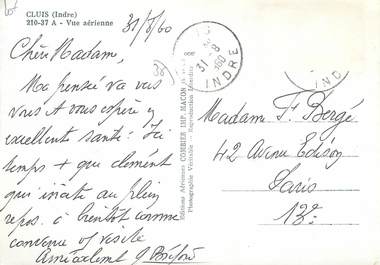 CLUIS (Indre)
210-37 A - Vue aérienne
31/8/60
Chère Madam,
Ma pensée va vers
vous et vous espère y
excellente santé. Ici
temps + que clément
qui incite au plein
repos. à bientôt comme
convenu
visite
Amicalement
Editions Aériennes COMBIER IMP. MACON
Photographie Véritable - Reproduction Interdite
CLUIS
31-8
1960
INDRE
IND
Madame F. Bergé
42 Avenue Edison
Paris
13e